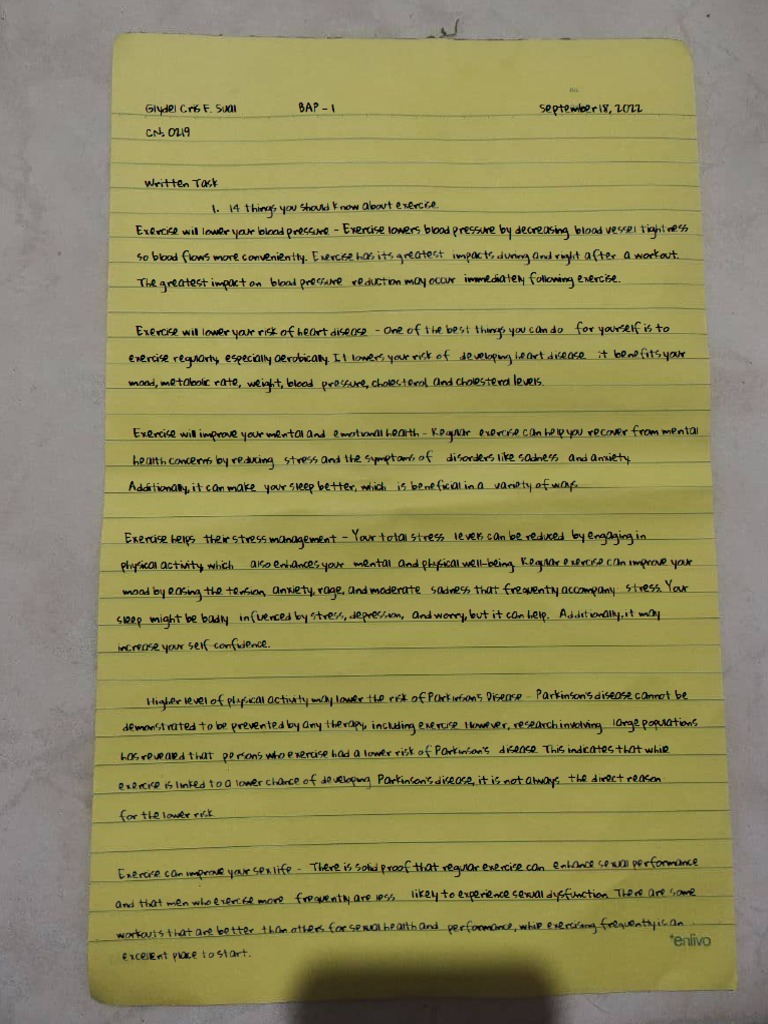 Glydel Cris F. Sual BAP - 1 September 18, 2022
CN: 0219
Written Task
1. 14 things you should know about exercise.
Exercise will lower your blood pressure - Exercise lowers blood pressure by decreasing blood vessel tightness
so blood flows more conveniently. Exercise has its greatest impacts during and right after a workout.
The greatest impact on blood pressure reduction may occur immediately following exercise.
Exercise will lower your risk of heart disease - One of the best things you can do for yourself is to
exercise regularly, especially aerobically. It lowers your risk of developing heart disease it benefits your
mood, metabolic rate, weight, blood pressure, cholesterol and cholesterol levels.
Exercise will improve your mental and emotional health - Regular exercise can help you recover from mental
health concerns by reducing stress and the symptoms of disorders like sadness and anxiety.
Additionally, it can make your sleep better, which is beneficial in a variety of ways.
Exercise helps their stress management - Your total stress levels can be reduced by engaging in
physical activity, which also enhances your mental and physical well-being. Regular exercise can improve your
mood by easing the tension, anxiety, rage, and moderate sadness that frequently accompany stress. Your
sleep might be badly influenced by stress, depression, and worry, but it can help. Additionally, it may
increase your self confidence.
Higher level of physical activity may lower the risk of Parkinson's Disease - Parkinson's disease cannot be
demonstrated to be prevented by any therapy, including exercise. However, research involving large populations
has revealed that persons who exercise had a lower risk of Parkinson's disease. This indicates that while
exercise is linked to a lower chance of developing Parkinson's disease, it is not always the direct reason
for the lower risk.
Exercise can improve your sex life - There is solid proof that regular exercise can enhance sexual performance
and that men who exercise more frequently are less likely to experience sexual dysfunction. There are some
workouts that are better than others for sexual health and performance, while exercising frequently is an
excellent place to start.
enlivo